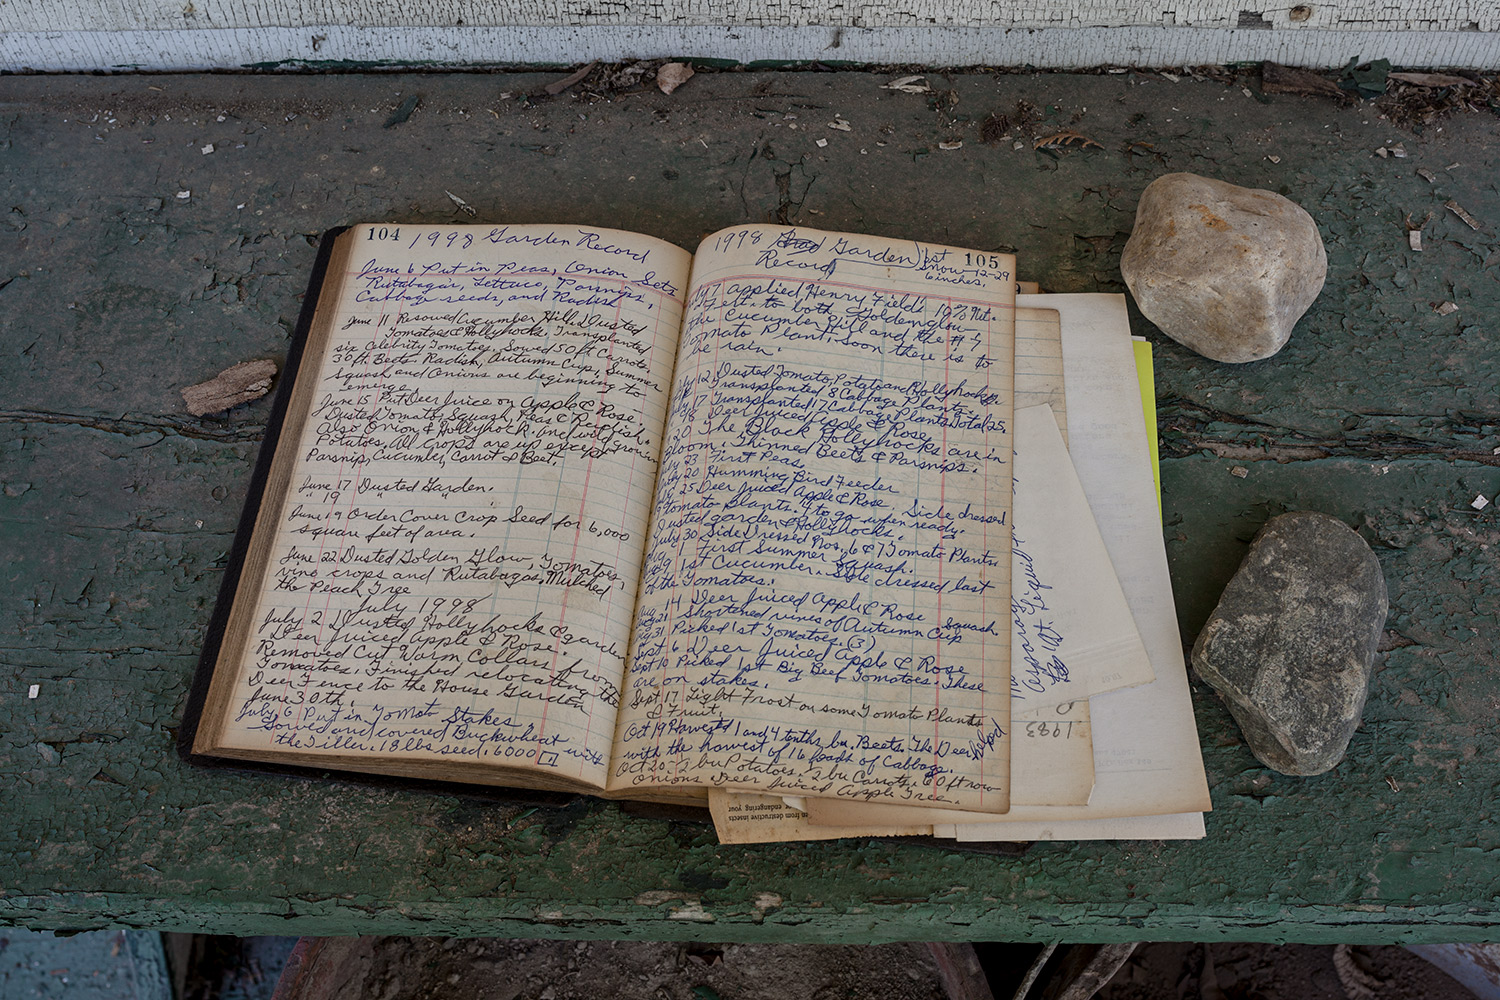 104 1998 Garden Record
June 6 Put in Peas, Onion Sets
Rutabagas, Lettuce, Parsnips,
Cabbage seeds, and Radish
June 11 Resowed Cucumber Hill. Dusted
Tomatoes & Hollyhocks. Transplanted
six Celebrity Tomatoes. Sowed 50 ft Carrots.
30 ft. Beets. Radish, Autumn Cup, Summer
Squash and Onions are beginning to
emerge.
June 15 Put Deer Juice on Apple & Rose.
Dusted Tomato, Squash, Peas & Radish.
Also Onion & Hollyhock and wild
Potatoes. All crops are up except
Parsnip, Cucumber, Carrot & Beet.
June 17 Dusted Garden.
" 19 " "
June 19 Order Cover Crop Seed for 6,000
square feet of area.
June 22 Dusted Golden Glow, Tomatoes,
vine crops and Rutabagas. Mulched
the Peach Tree
July 1998
July 2 Dusted Hollyhocks & garden
Deer Juiced Apple & Rose.
Removed Cut Worm Collars from
Tomatoes. Finished relocating the
Deer Fence to the House Garden
June 30th.
July 6 Put in Tomato Stakes
Sowed and covered Buckwheat with
the Tiller. 18 lbs seed, 6000
1998 Garden 1st 105
Record snow - 12-29
6 inches.
July 7 applied Henry Field's 10% Nit.
Fert. to both Goldenglow
the Cucumber Hill and the # 4
Tomato Plant. Soon there is to
be rain.
July 12 Dusted Tomato, Potato and Hollyhock.
Transplanted 8 Cabbage Plants.
July 17 Transplanted 7 Cabbage Plants. Total 25.
18 Deer Juiced Apple & Rose
20 The Black Hollyhocks are in
Bloom. Thinned Beets & Parsnips.
July 23 First Peas.
July 20 Humming Bird Feeder
25 Deer Juiced Apple & Rose. Side dressed
Tomato Plants. 4 to go when ready.
Dusted garden & Hollyhocks.
July 30 Side Dressed Nos. 6 & 7 Tomato Plants
Aug 1 First Summer Squash.
Aug 9 1st Cucumber. Side dressed last
of the Tomatoes.
Aug 14 Deer Juiced Apple & Rose
Aug 21 Shortened vines of Autumn Cup Squash
Aug 31 Picked 1st Tomatoes. (3)
Sept 6 Deer Juiced Apple & Rose
Sept 10 Picked 1st Big Beef Tomatoes. These
are on stakes.
Sept 17 Light Frost on some Tomato Plants
& Fruit.
Oct 19 Harvest 1 and 4 tenths bu. Beets. The Deer helped
with the harvest of 16 heads of Cabbage.
Oct 20 - 2 bu Potatoes. 2 bu Carrots. 60 ft row
Onions. Deer Juiced Apple Tree.
Asparagus
Liquid
1983
en from destructive insects
endangering your